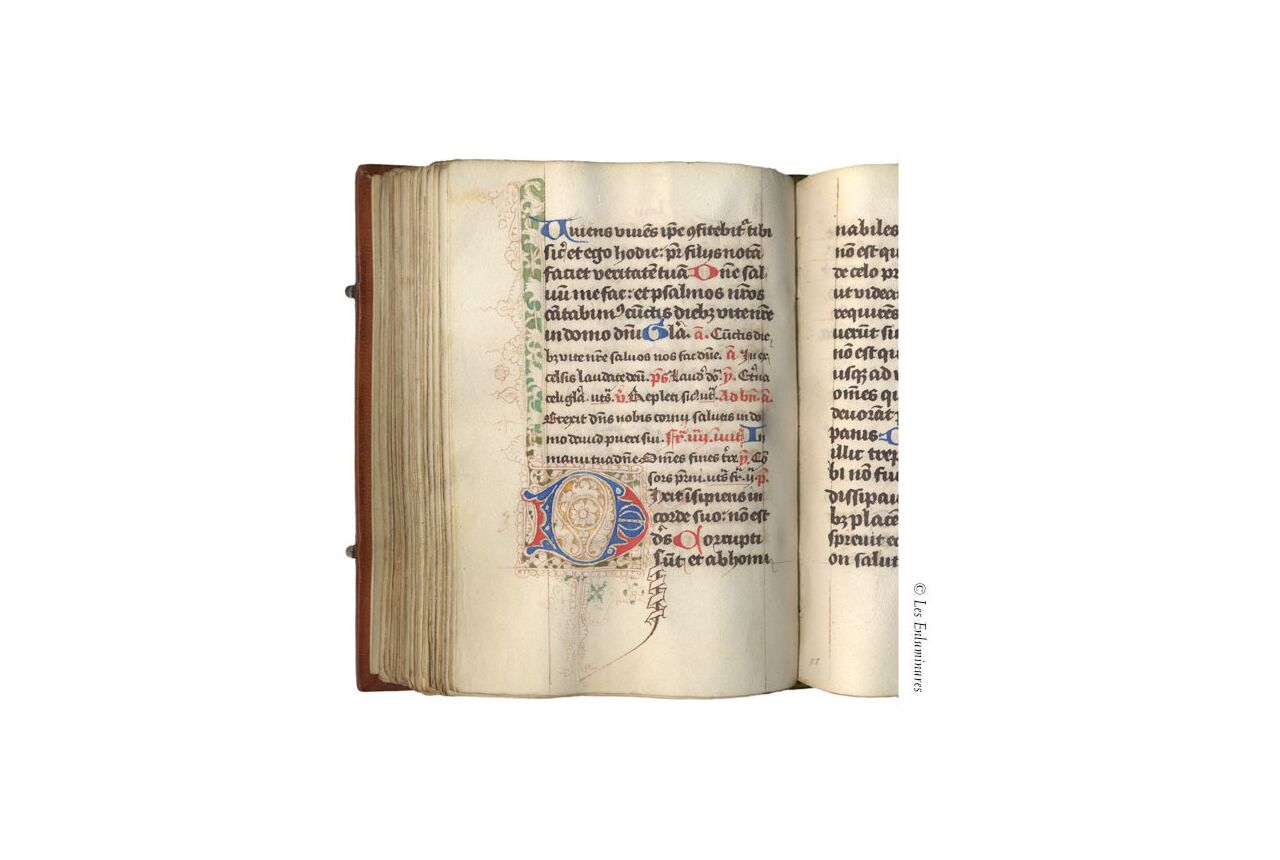 Viuens viuēs ip̄e ꝯfitebit᷑ tibi
sic̄ et ego hodie: pr̄ filijs notā
faciet veritatē tuā Dn̄e sal
uū me fac: et psalmos nr̄os
cātabimꝰ cūctis diebꝫ vite nr̄e
in domo dn̄i Gl̄a. a᷑. Cūctis die
bꝫ vite nr̄e saluos nos fac dn̄e. a᷑. In ex
celsis laudate deū. ps̄. Laud᷑ dō. ꝟ. Et̄na
celi gl̄a. ut s᷑. ꝟ. Repleti sic᷑ ut s᷑. Ad bn̄. a᷑.
Erexit dn̄s nobis cornu salutis in do
mo dauid pueri sui. fr̄. iiij. inuit᷑ In
manu tua dn̄e Omēs fines tr̄e. ꝟ. Cō
sors pr̄ni. ut s᷑ fr̄. ij. p̄.
Dixit īsipiens in
corde suo: nō est
d̄s Corrupti
sūt et abhomi
nabiles
nō est qu
de celo pr
ut videa
requirēs
uerūt si
nō est qu
usqꝫ ad v
omēs qu
deuorāt
panis
illic trep
bi nō fu
dissipau
bꝫ place
spreuit e
on salut
© Les Enluminures